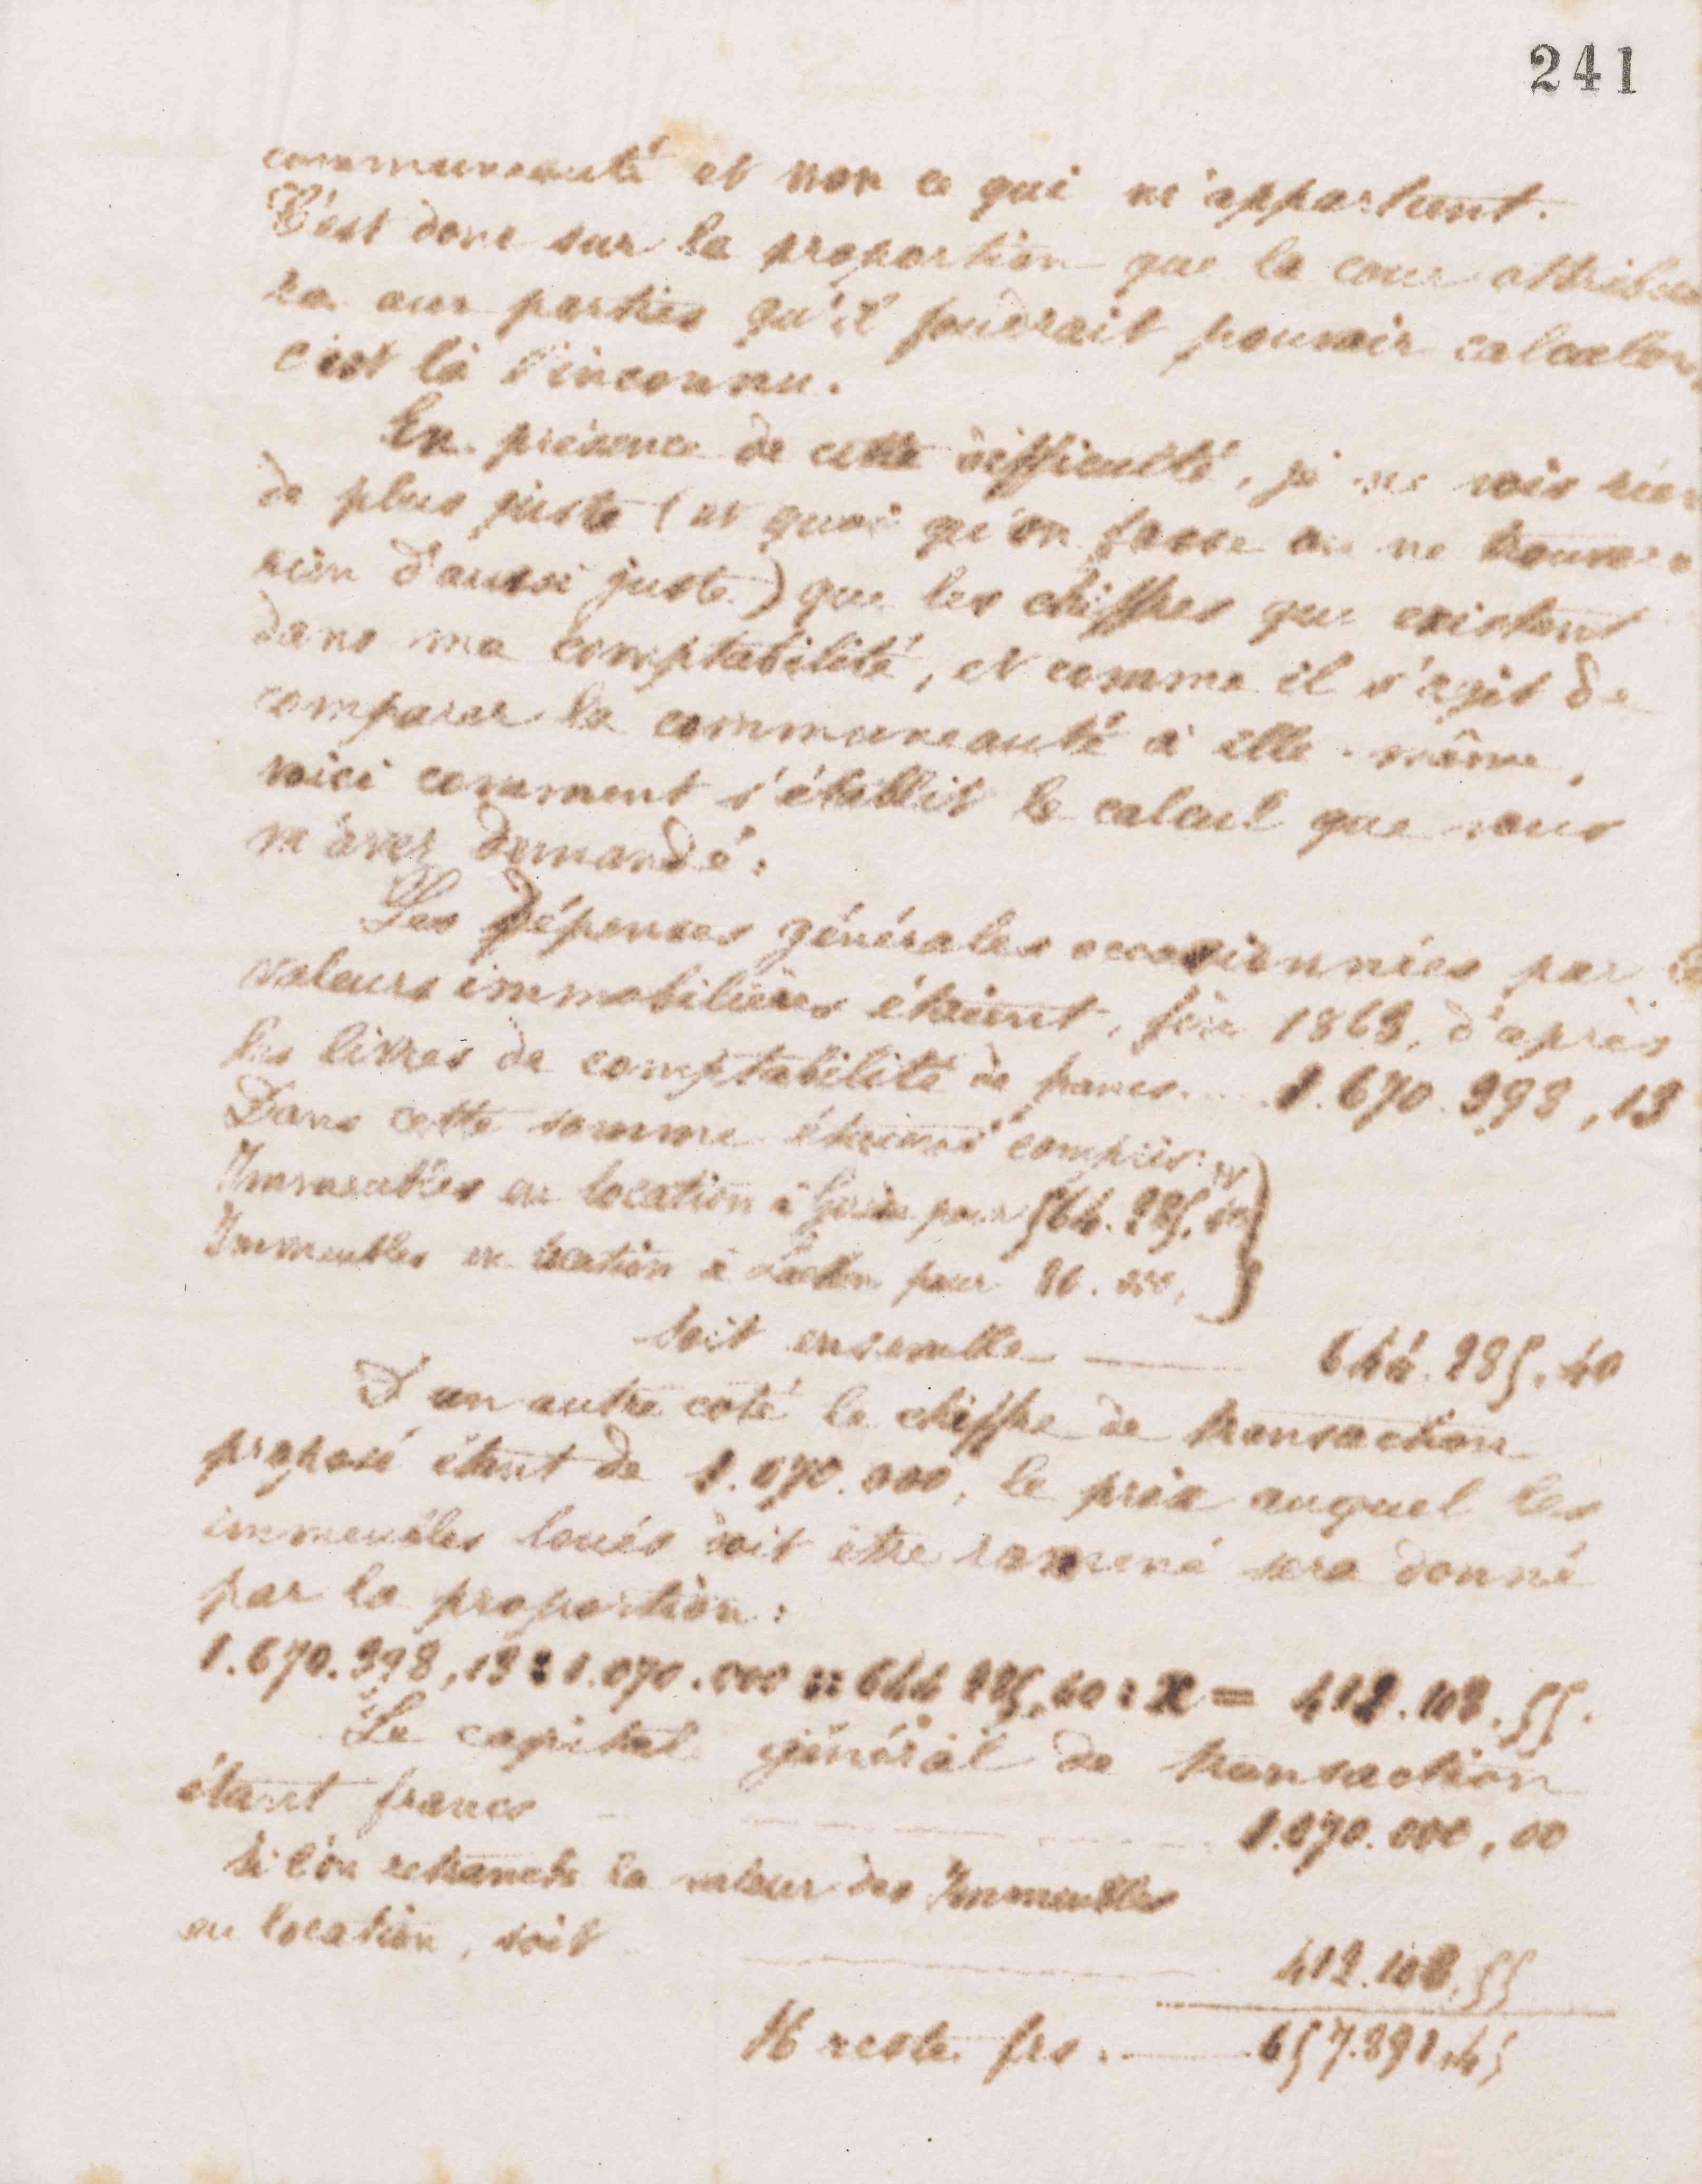 241
communeauté et non ce qui m'appartient.
C'est donc sur la proportion que la cour attribue
ra aux parties qu'il faudrait pouvoir calculer,
c'est là l'inconnu.
En présence de cette difficulté, je ne vois rien
de plus juste (et quoi qu'on fasse on ne trouvera
rien d'aussi juste) que les chiffres qui existent
dans ma comptabilité, et comme il s'agit de
comparer la communeauté à elle-même,
voici comment s'établit le calcul que vous
m'avez demandé :
Les dépenses générales occasionnées par
valeurs immobilières étaient, fin 1863, d'après
les livres de comptabilité de francs... 1.670.398,13
Dans cette somme étaient compris :
Immeubles en location à Guise pour 564.285.40
Immeubles en location à Laeken pour 80.000,
soit ensemble — 644.285.40
D'un autre coté le chiffre de transaction
proposé étant de 1.070.000, le prix auquel les
immeubles loués doit être ramené sera donné
par la proportion :
1.670.398,13 : 1.070.000 :: 644 285,40 : X = 412.108.55.
Le capital général de transaction
étant francs 1.070.000,00
Si l'on retranche la valeur des Immeubles
en location, soit
412.108,55
Il reste frs. — 657.891,45